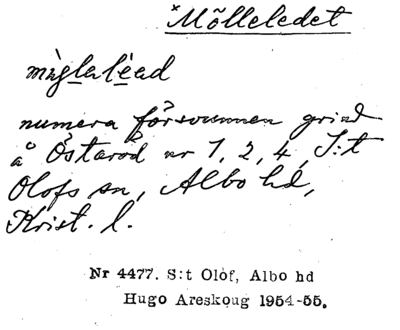 *Mölleledet
mìglalèad
numera försvunnen grind
å Östaröd nr 1, 2, 4, S:t
Olofs sn, Albo hd,
Krist. l.
Nr 4477. S:t Olof, Albo hd
Hugo Areskoug 1954-55.